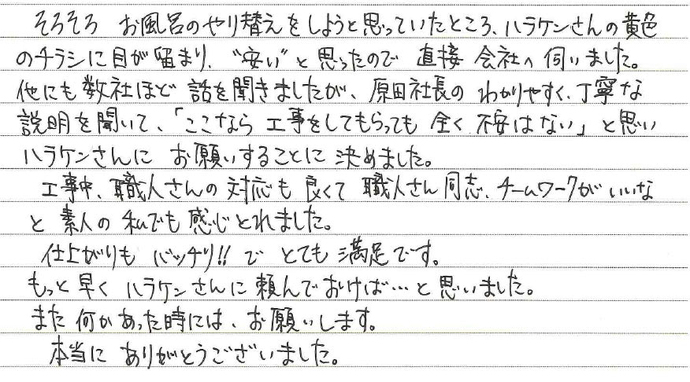 そろそろ お風呂のやり替えをしようと思っていたところ、ハラケンさんの黄色
のチラシに目が留まり、"安い"と思ったので 直接 会社へ 伺いました。
他にも数社ほど 話を聞きましたが、原田社長の わかりやすく、丁寧な
説明を聞いて、「ここなら 工事をしてもらっても 全く 不安はない」と思い
ハラケンさんに お願いすることに 決めました。
工事中、職人さんの 対応も 良くて 職人さん同志、チームワークがいいな
と 素人の 私でも 感じとれました。
仕上がりも バッチリ!! で とても 満足です。
もっと早く ハラケンさんに 頼んでおけば…と思いました。
また 何かあった時には、お願いします。
本当に ありがとうございました。